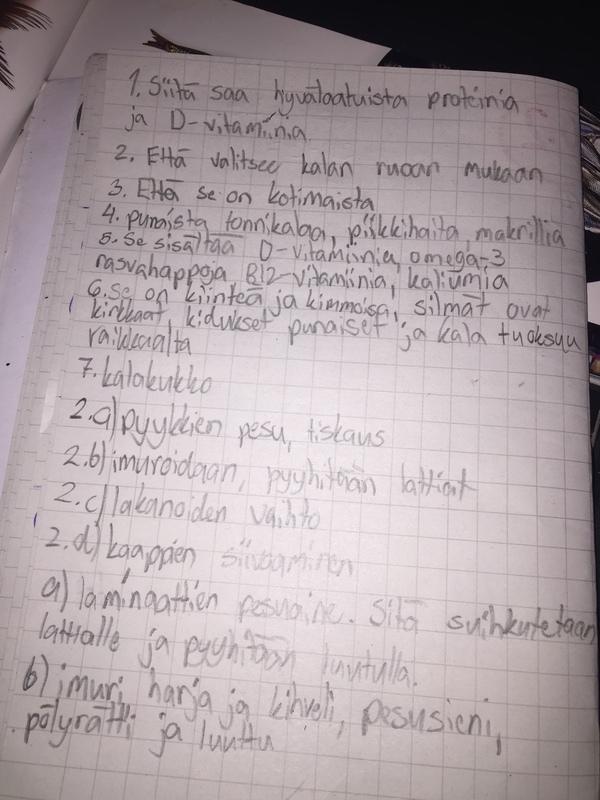 1. Siitä saa hyvälaatuista proteinia
ja D-vitamiinia.
2. Että valitsee kalan ruoan mukaan
3. Että se on kotimaista
4. punaista tonnikalaa, piikkihaita, makrillia
5. Se sisältää D-vitamiinia, omega-3
rasvahappoja B12-vitamiinia, kaliumia
6. Se on kiinteä ja kimmoisa, silmät ovat
kirkkaat, kidukset punaiset ja kala tuoksuu
raikkaalta
7. kalakukko
2.a) pyykkien pesu, tiskaus
2.b) imuroidaan, pyyhitään lattiat
2.c) lakanoiden vaihto
2.d) kaappien siivoaminen
a) laminaattien pesuaine. Sitä suihkutetaan
lattialle ja pyyhitään luutulla.
b) imuri, harja ja kihveli, pesusieni,
pölyrätti ja luuttu